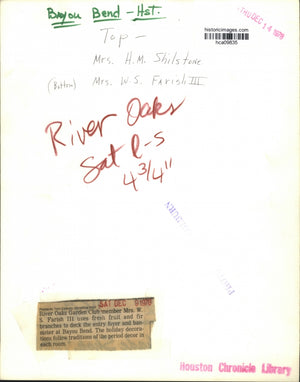 Bayou Bend - Hst.
THU DEC 14 1978
historicimages.com
hca09635
Top -
Mrs. H. M. Shilstone
(Bottom) Mrs. W. S. FARISH III
River Oaks
Sat R-S
4 3/4"
SAT DEC 9 1978
River Oaks Garden Club member Mrs. W.
S. Farish III uses fresh fruit and fir
branches to deck the entry foyer and ban-
nister at Bayou Bend. The holiday decora-
tions follow traditions of the period decor in
each room.
Houston Chronicle Library